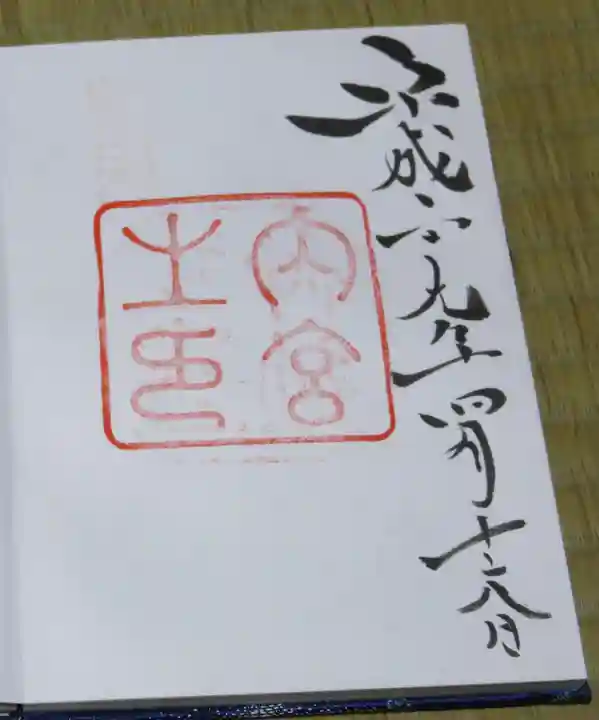 平成二十九年四月十六日
内宮
之印